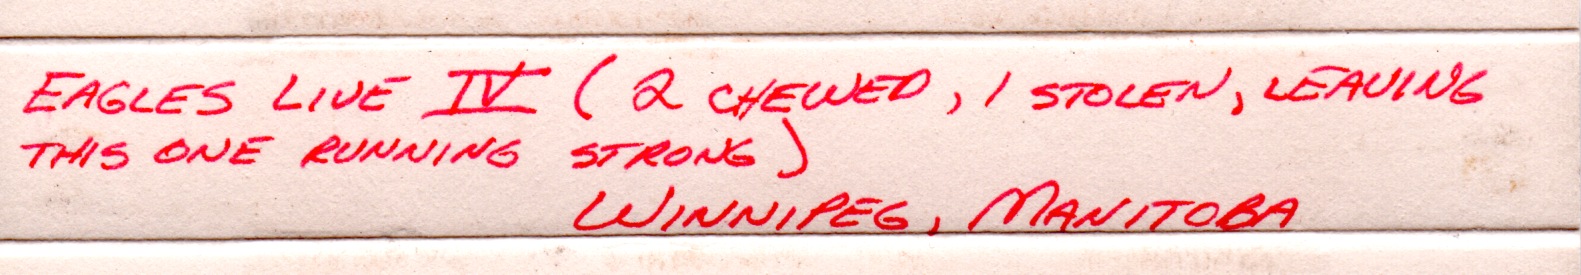 EAGLES LIVE IV ( 2 CHEWED, 1 STOLEN, LEAVING
THIS ONE RUNNING STRONG)
WINNIPEG, MANITOBA